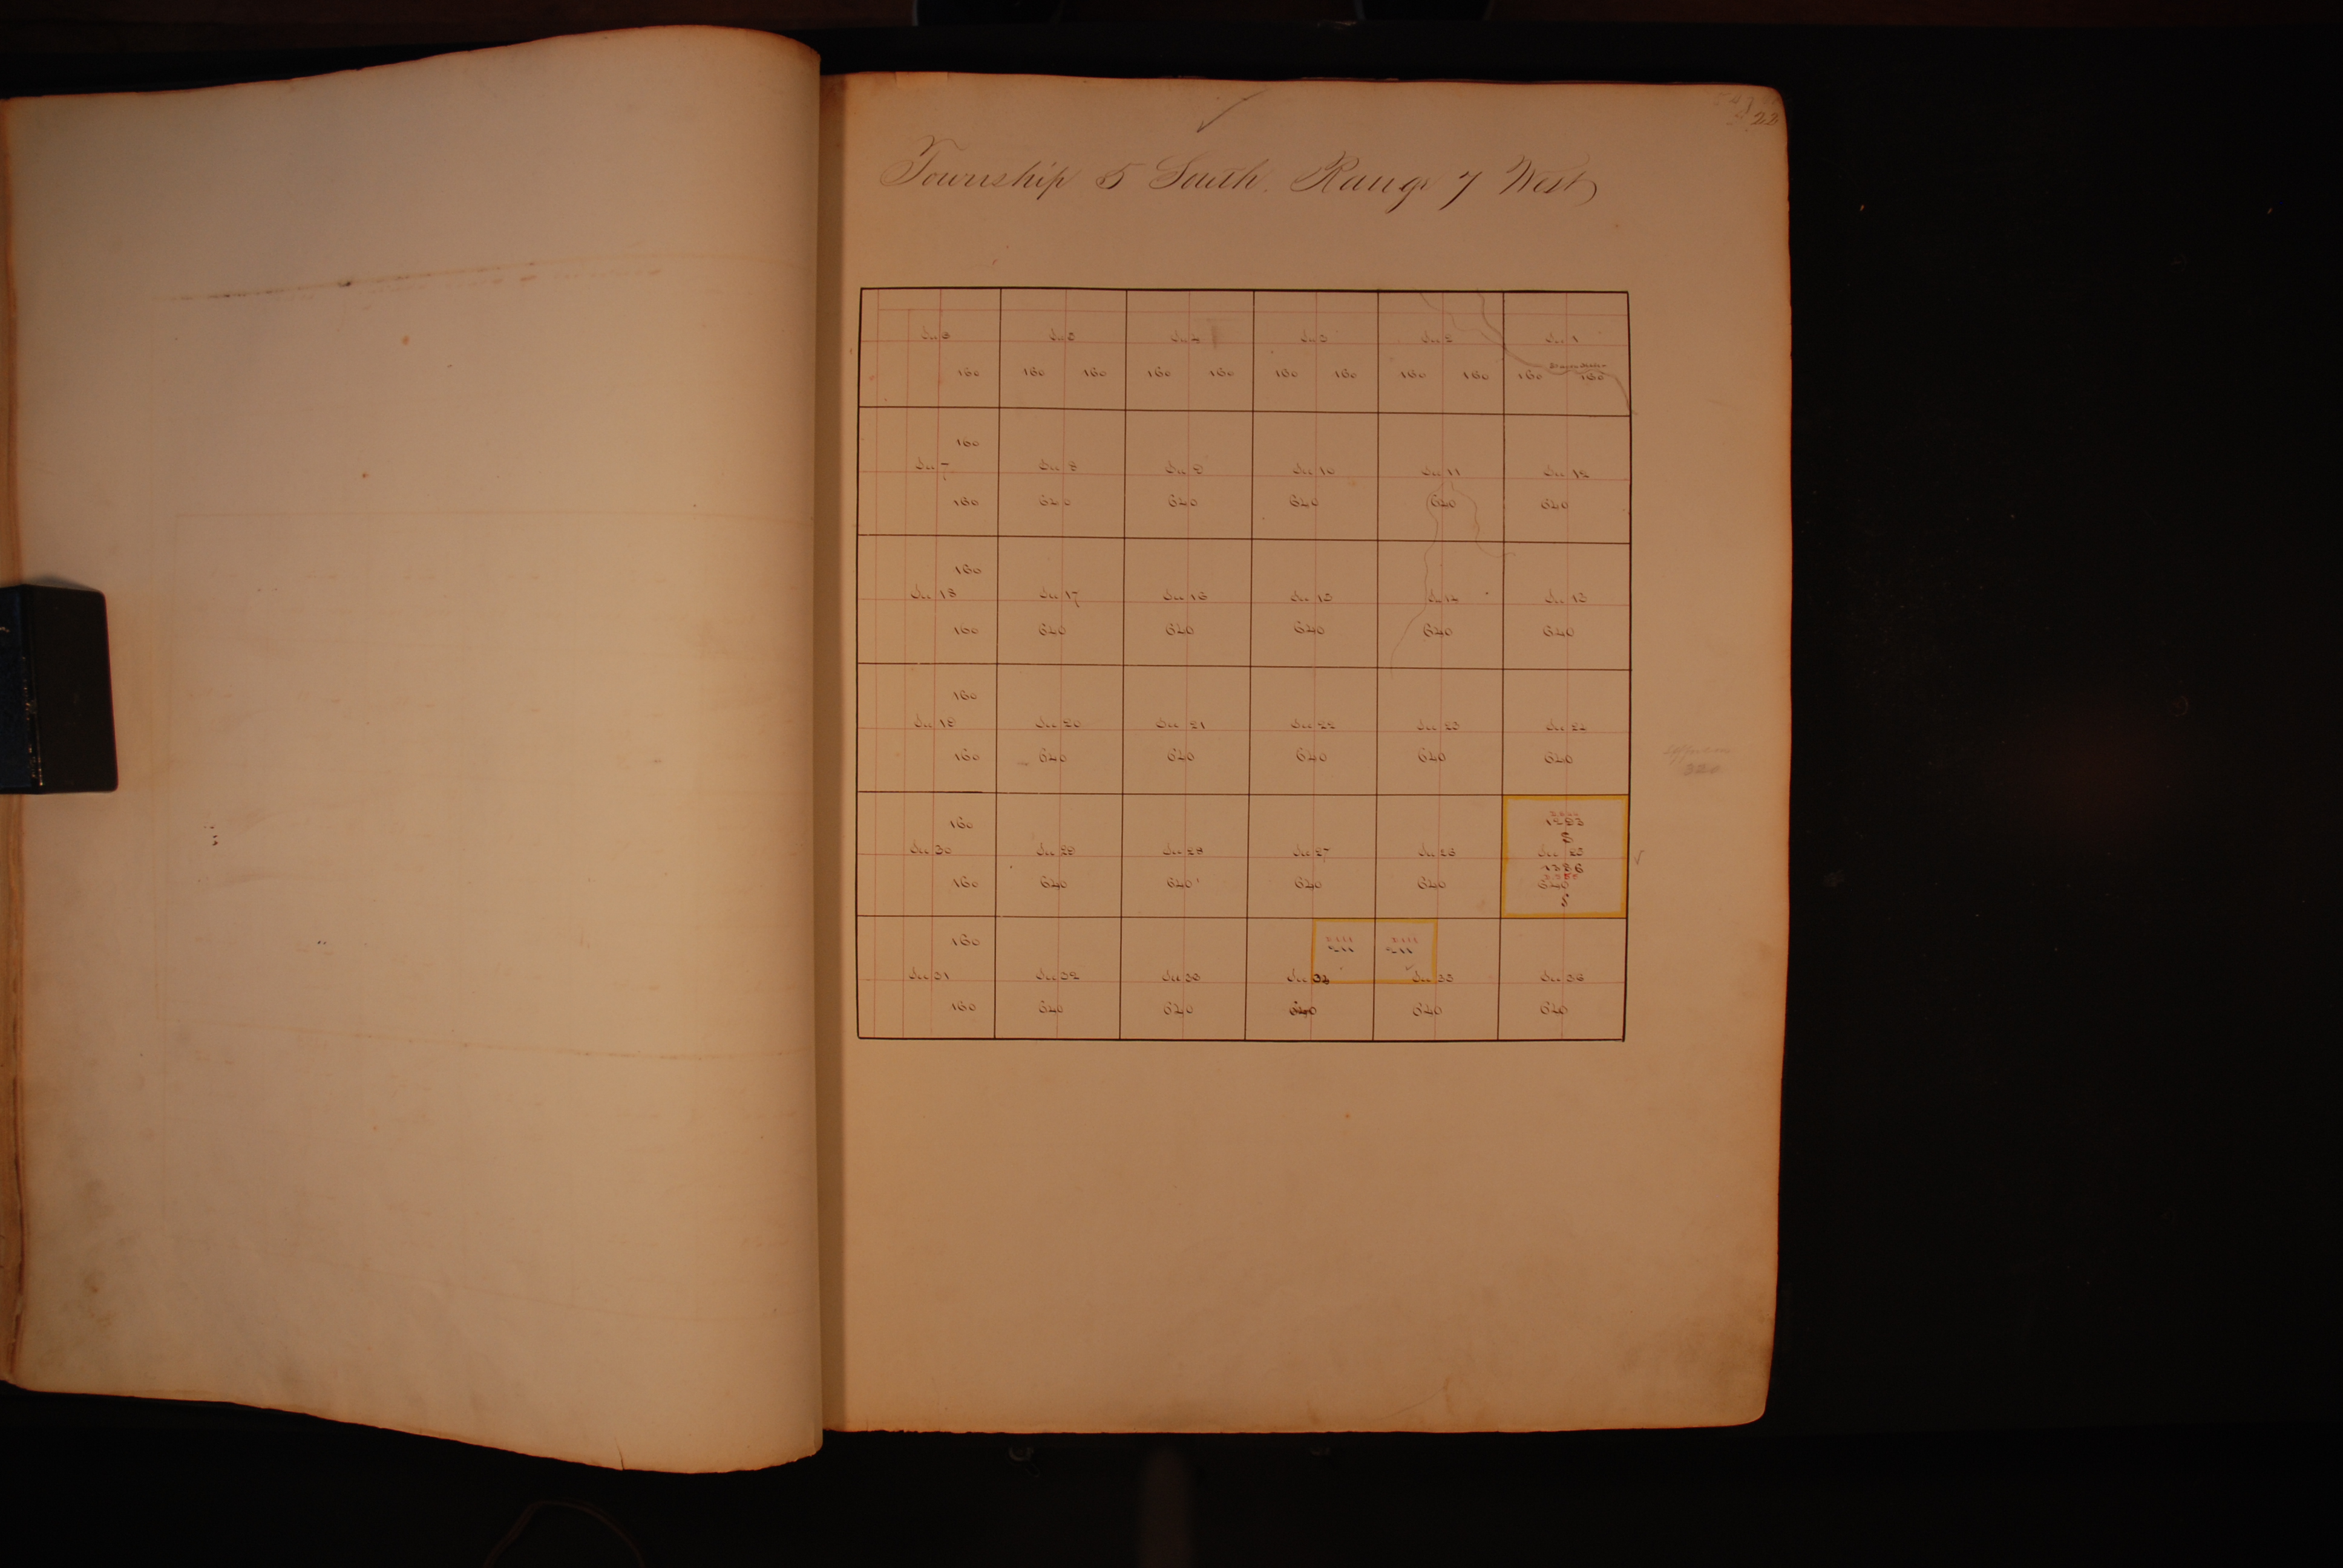 22
Township 5 South. Range 7 West
Sec 6 Sec 5 Sec 4 Sec 3 Sec 2 Sec 1
160 160 160 160 160 160 160 160 160 160 160
160
Sec 7 Sec 8 Sec 9 Sec 10 Sec 11 Sec 12
160 640 640 640 640 640
160
Sec 18 Sec 17 Sec 16 Sec 15 Sec 14 Sec 13
160 640 640 640 640 640
160
Sec 19 Sec 20 Sec 21 Sec 22 Sec 23 Sec 24
160 640 640 640 640 640
320
160 1293
S
Sec 30 Sec 29 Sec 28 Sec 27 Sec 26 Sec 25
1326
160 640 640 640 640 640
S
160
Sec 31 Sec 32 Sec 33 Sec 34 Sec 35 Sec 36
160 640 640 640 640 640